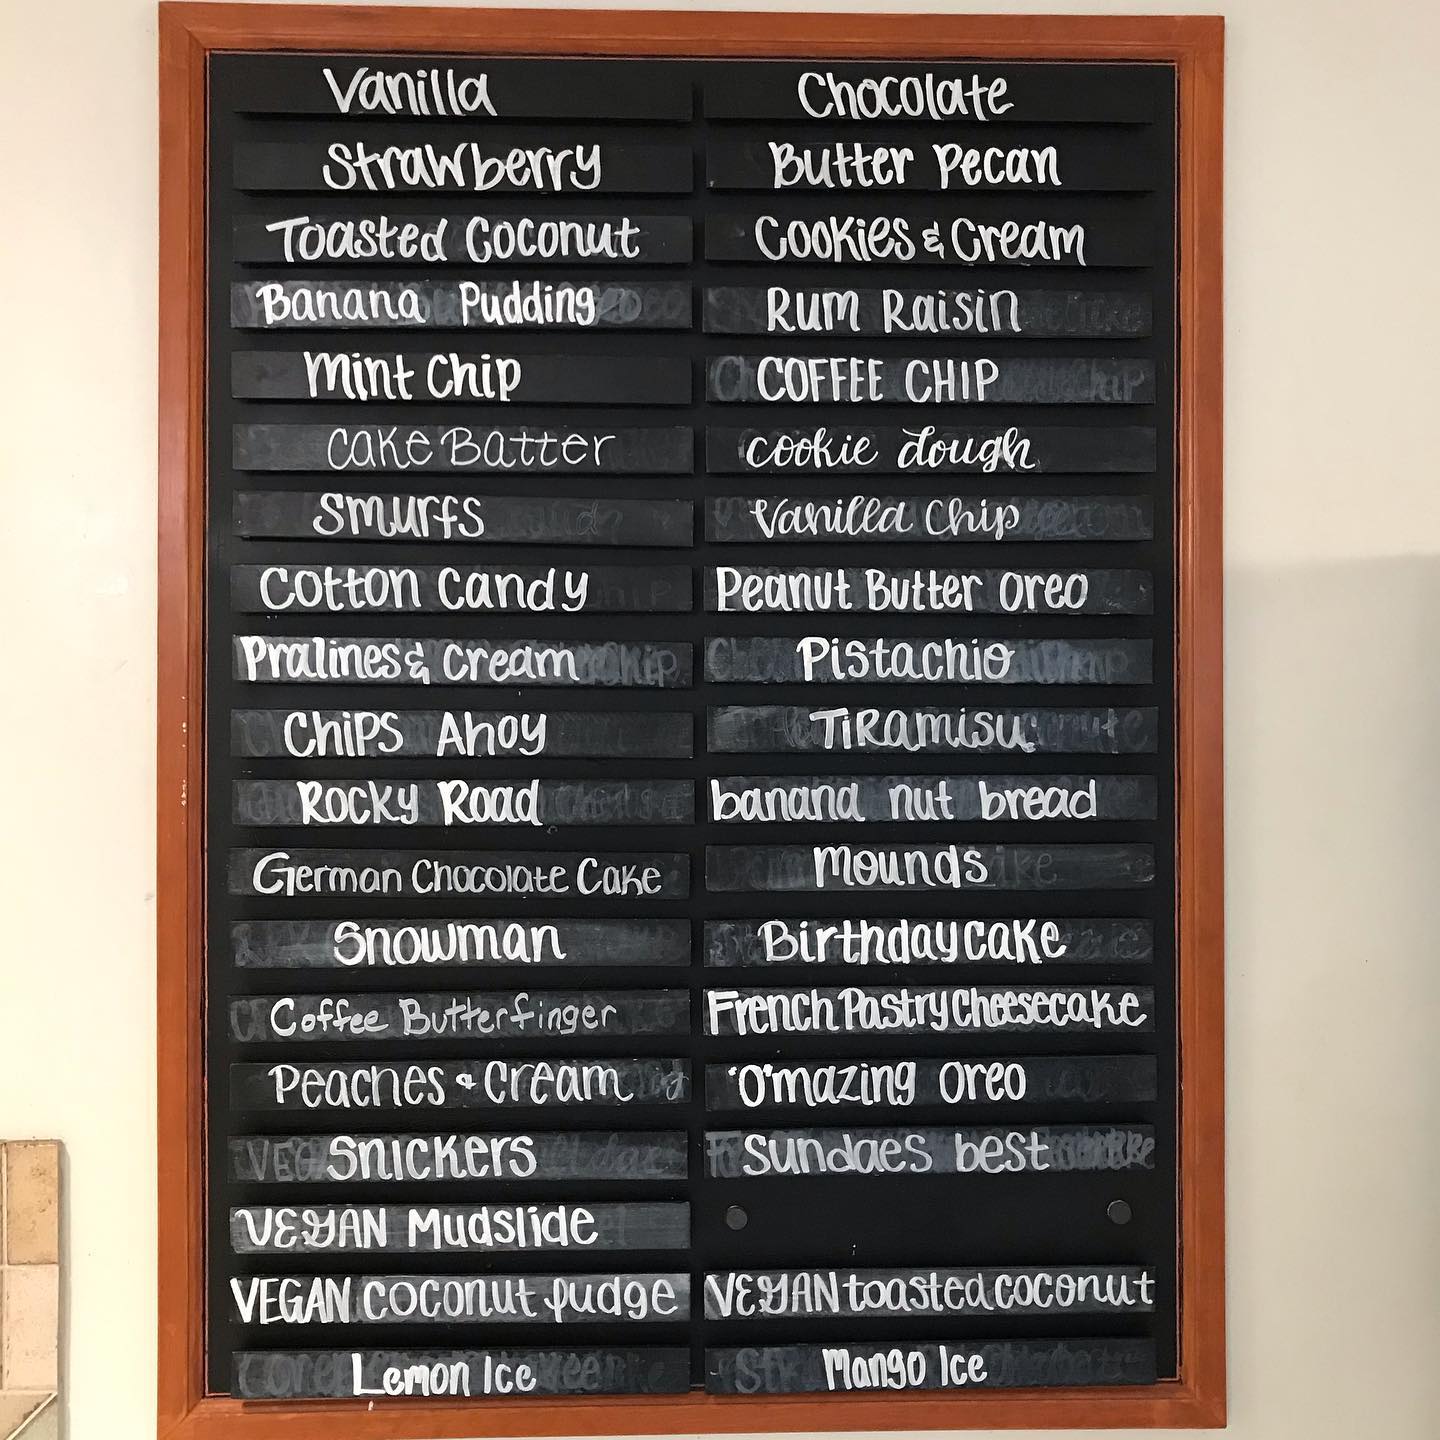 Vanilla
Chocolate
Strawberry
Butter Pecan
Toasted Coconut
Cookies & Cream
Banana Pudding
Rum Raisin
Mint Chip
COFFEE CHIP
Cake Batter
cookie dough
Smurfs
Vanilla Chip
Cotton Candy
Peanut Butter Oreo
Pralines & Cream
Pistachio
Chips Ahoy
TiRamisu
Rocky Road
banana nut bread
German Chocolate Cake
Mounds
Snowman
Birthday cake
Coffee Butterfinger
French Pastry Cheesecake
Peaches & Cream
'O'mazing Oreo
Snickers
Sundaes best
VEGAN Mudslide
VEGAN coconut fudge
VEGAN toasted coconut
Lemon Ice
Mango Ice